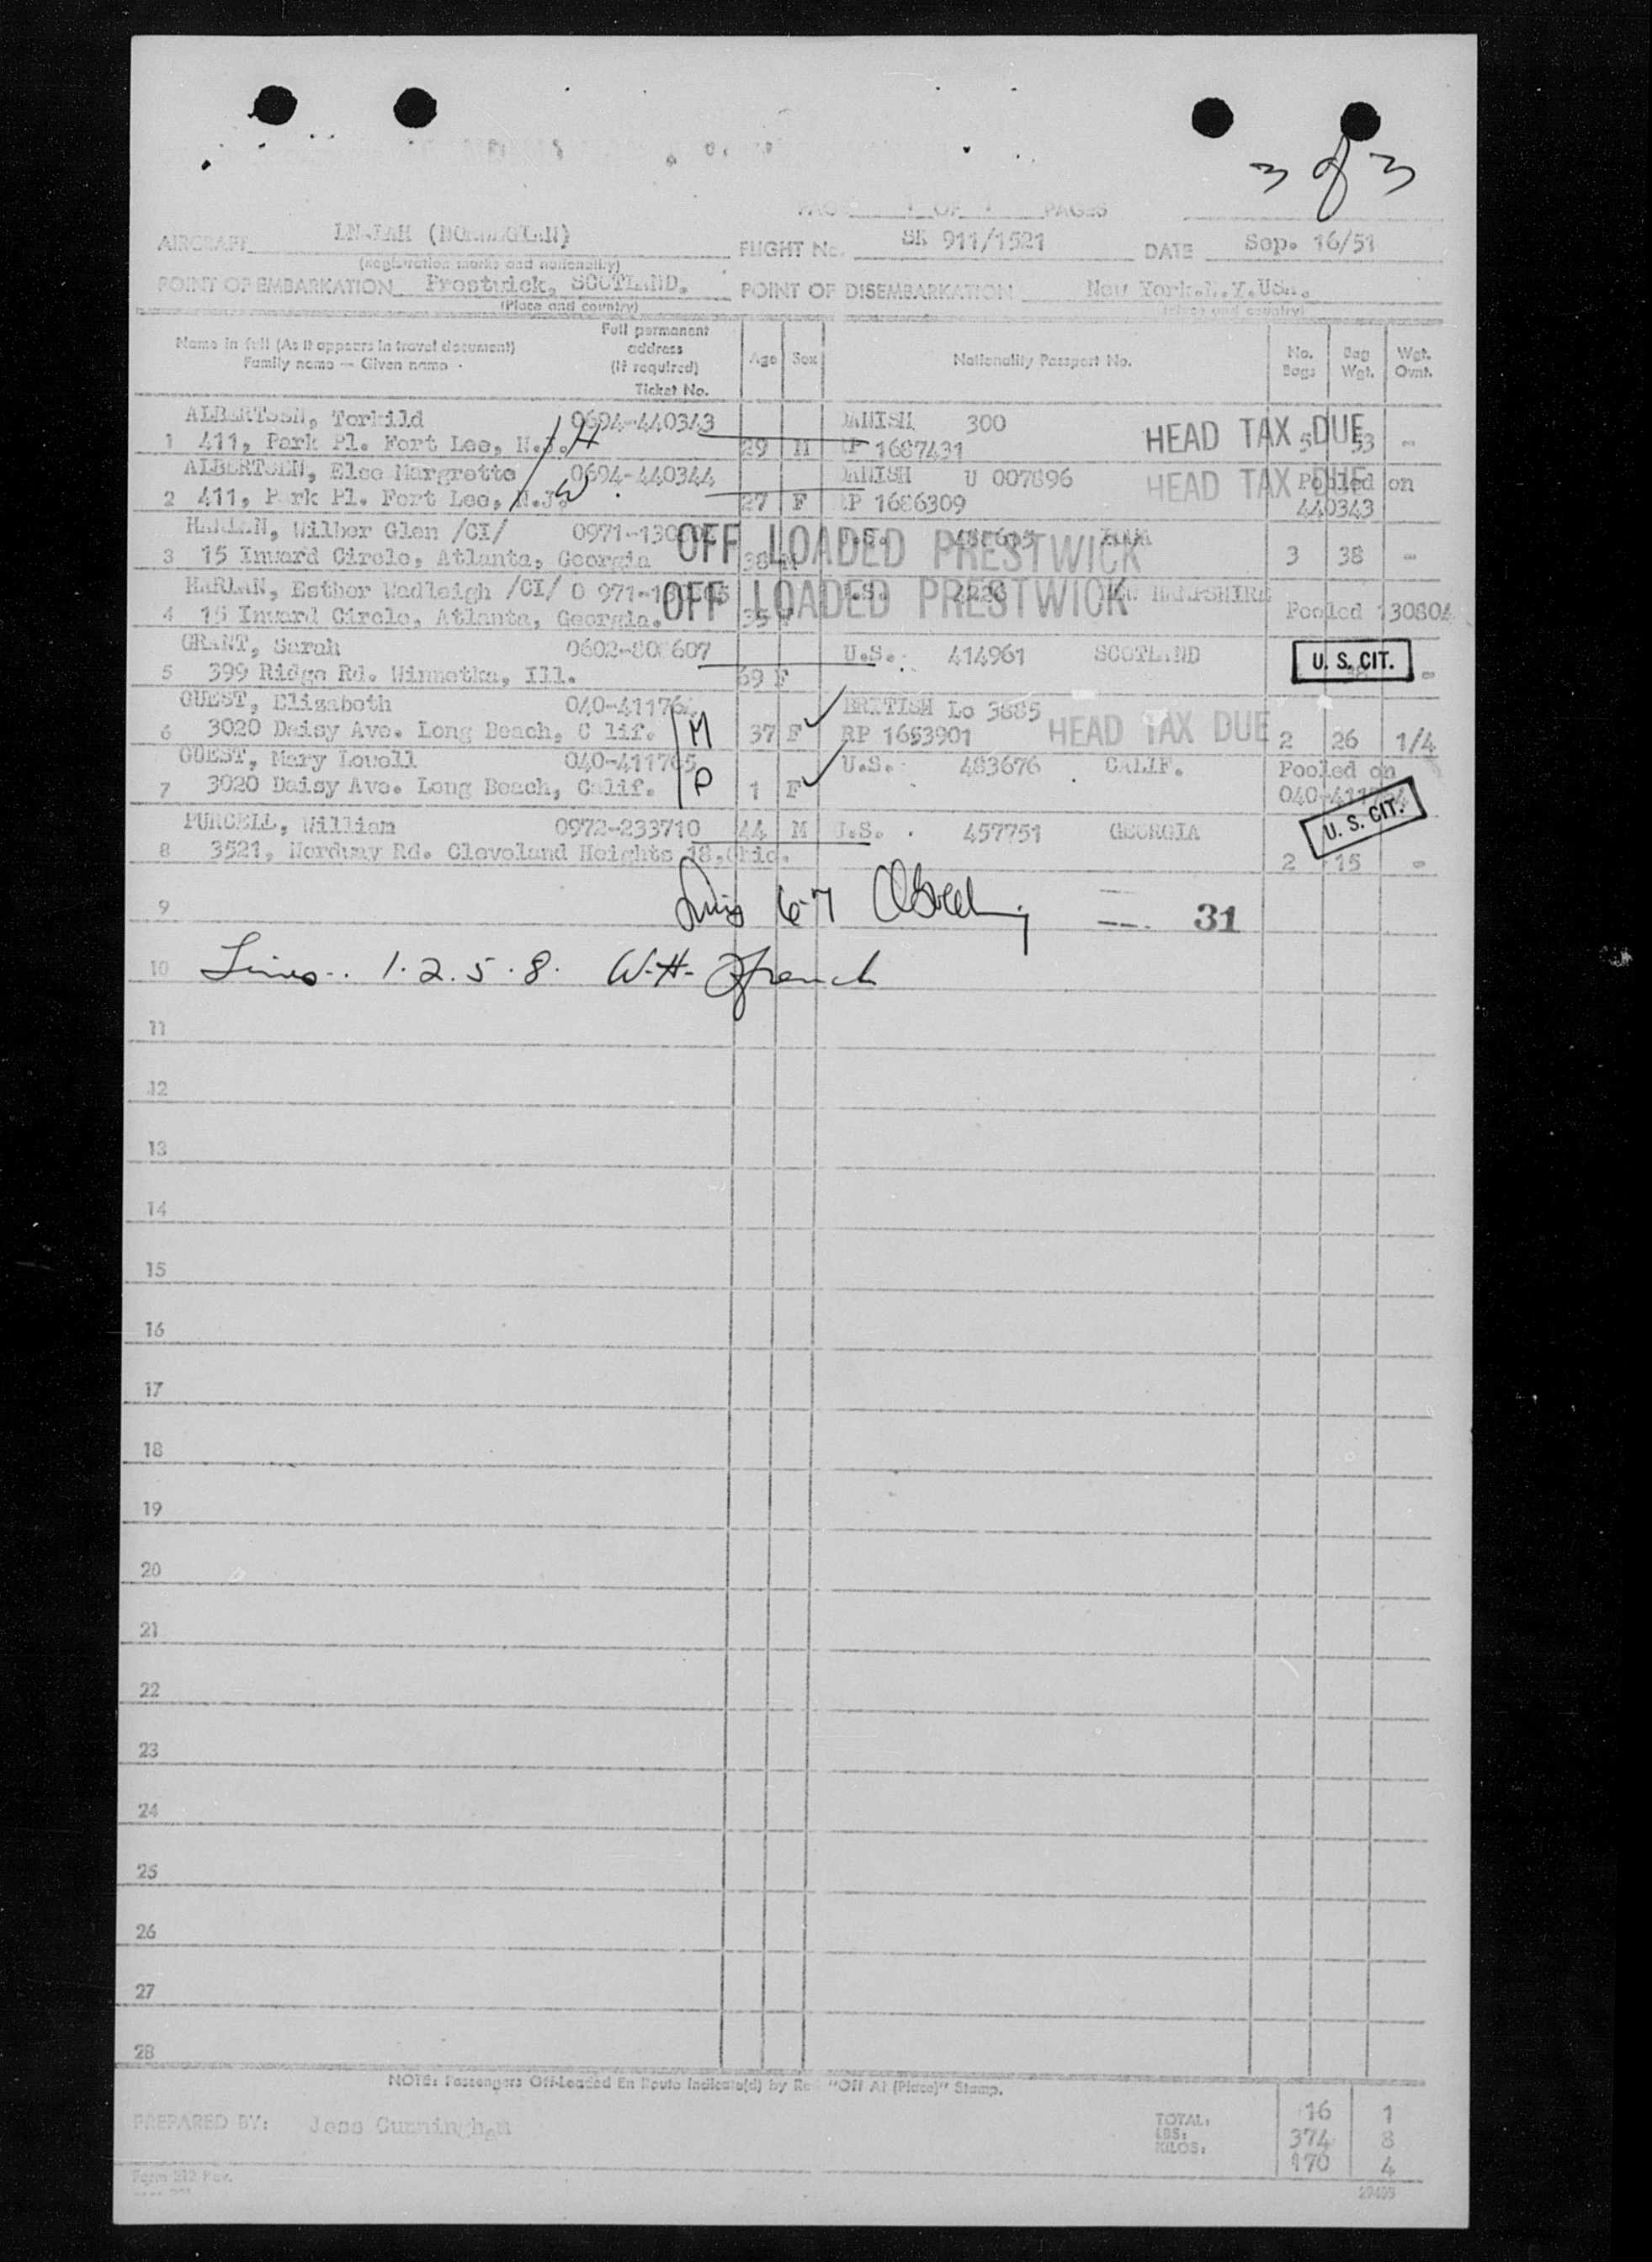 3 of 3
PAGES
AIRCRAFT (NORWEGIAN) FLIGHT No. SK 911/1521 DATE Sep. 16/51
(Registration marks and nationality)
POINT OF EMBARKATION Prestwick, SCOTLAND. POINT OF DISEMBARKATION New York.N.Y.USA.
(Place and country) (Place and country)
Name in full (As it appears in travel document) Family name — Given name Full permanent address (If required) Ticket No. Age Sex Nationality Passport No. No. Bags Bag Wgt. Wgt. Ovnt.
ALBERTSEN, Torkild 0694-440343 DANISH 300
1 411, Park Pl. Fort Lee, N.J. H 29 M RP 1687431 HEAD TAX DUE 5 53 -
ALBERTSEN, Else Margrette 0694-440344 DANISH U 007896 HEAD TAX Pooled on
2 411, Park Pl. Fort Lee, N.J. W 27 F RP 1686309 440343
HARLAN, Wilber Glen /CI/ 0971-130804 OFF LOADED PRESTWICK U.S.
3 15 Inward Circle, Atlanta, Georgia 38 M 3 38 -
HARLAN, Esther Wadleigh /CI/ 0 971- OFF LOADED PRESTWICK U.S. NEW HAMPSHIRE
4 15 Inward Circle, Atlanta, Georgia. 35 F Pooled 130804
GRANT, Sarah U.S. 414961 SCOTLAND U. S. CIT.
5 399 Ridge Rd. Winnetka, Ill. 69 F -
GUEST, Elizabeth 040-411764 BRITISH Lo 3885
6 3020 Daisy Ave. Long Beach, C lif. M 37 F RP 1653901 HEAD TAX DUE 2 26 1/4
GUEST, Mary Lowell 040-411765 U.S. 483676 CALIF. Pooled on
7 3020 Daisy Ave. Long Beach, Calif. P 1 F 040-411764
PURCELL, William 0972-233710 44 M U.S. 457751 GEORGIA U. S. CIT.
8 3521, Nordway Rd. Cleveland Heights 18, Ohio. 2 15 -
9 Lines 6-7 31
10 Lines.. 1.2.5.8. W.H. French
11
12
13
14
15
16
17
18
19
20
21
22
23
24
25
26
27
28
NOTE: Passengers Off-Loaded En Route Indicate(d) by Re "Off At (Place)" Stamp.
PREPARED BY: Jess Cunningham TOTAL: 16 1
LBS: 374 8
KILOS: 170 4
Form 212 Rev.